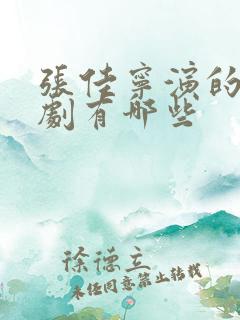 張佳寧演的
劇有哪些
徐德立
未经同意禁止转载